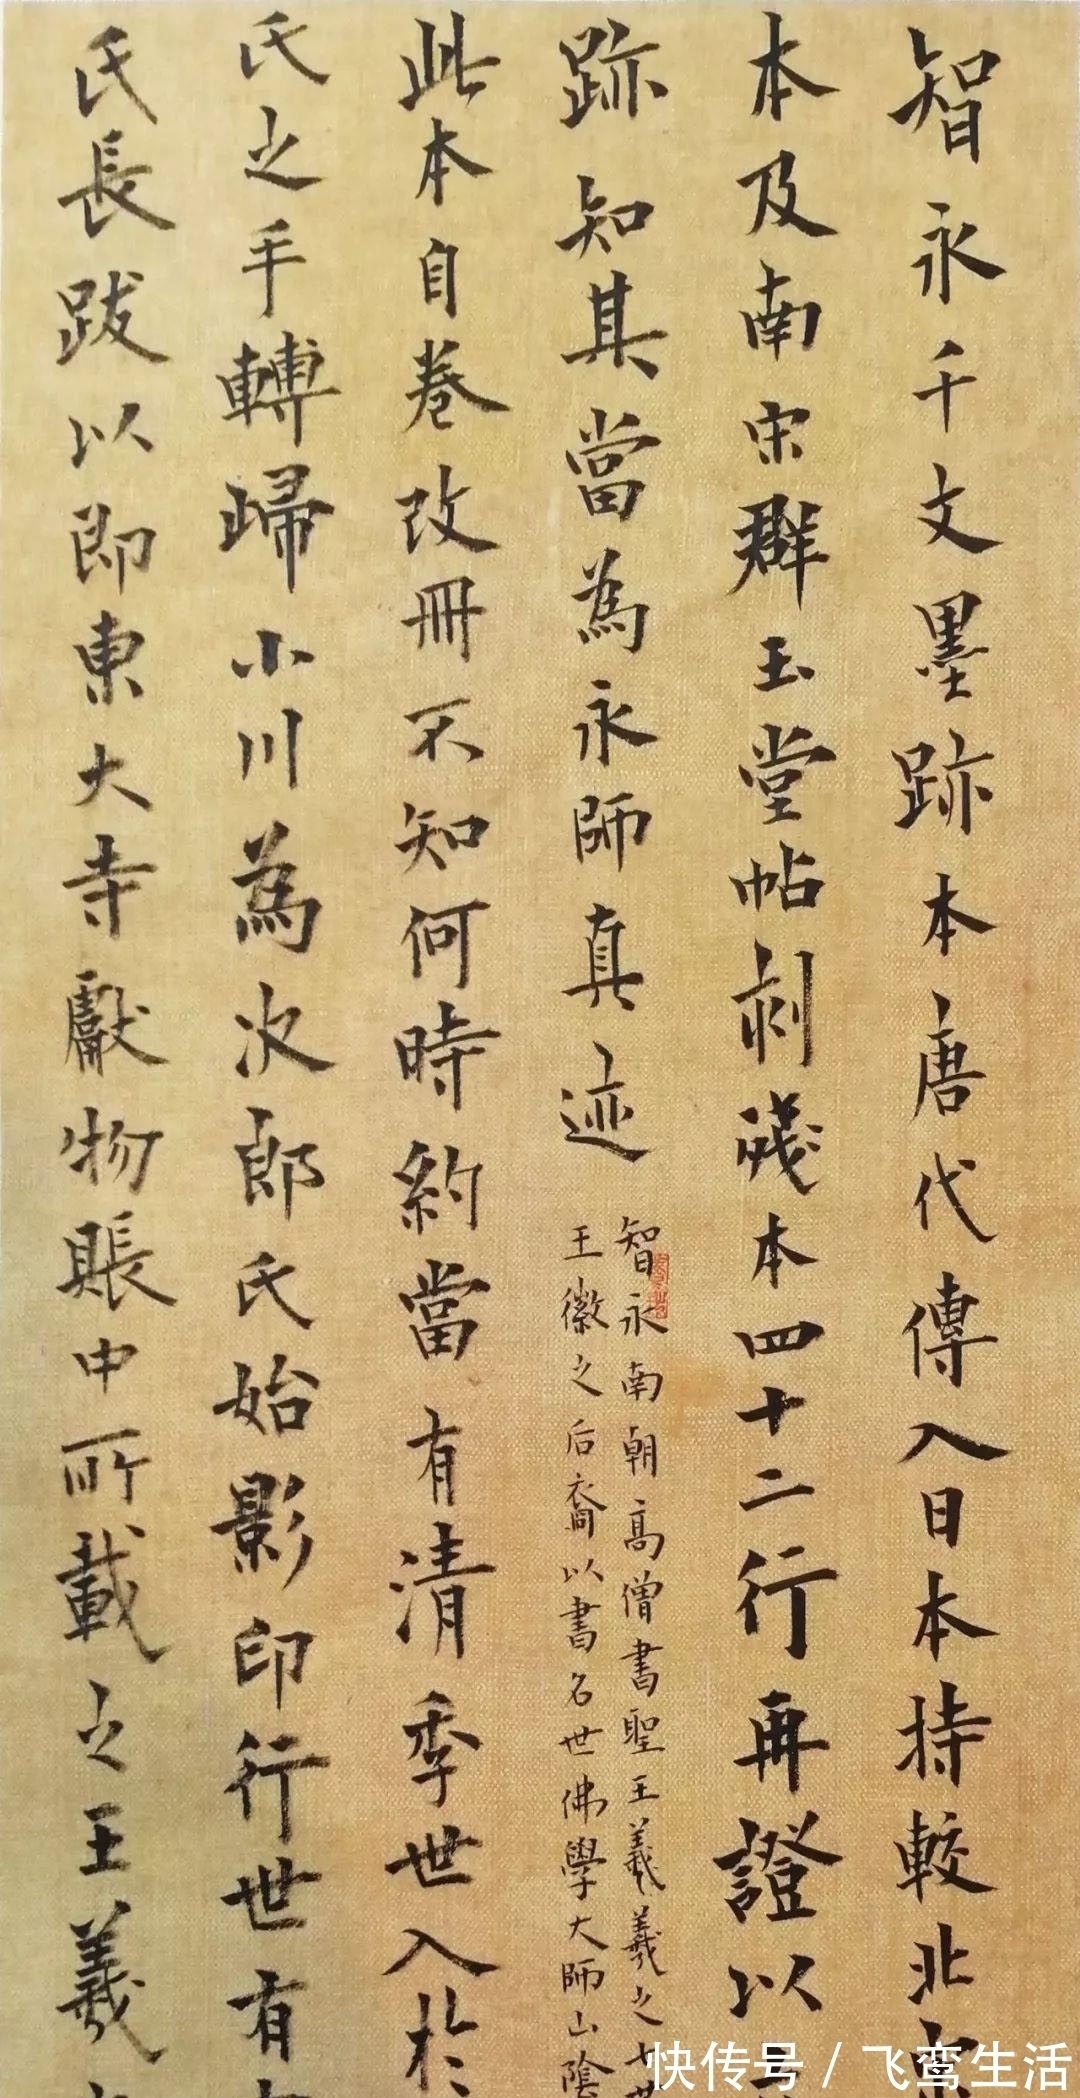 智永千文墨跡本唐代傳入日本持較北
本及南宋群玉堂帖刻殘本四十二行再證以
跡知其當為永師真迹
智永南朝高僧書聖王羲羲之七世
王徽之后裔以書名世佛學大師山陰
此本自卷改冊不知何時約當有清季世入於
氏之手轉歸小川為次郎氏始影印行世有
氏長跋以即東大寺獻物賬中所載之王羲
快传号 / 飞鸾生活